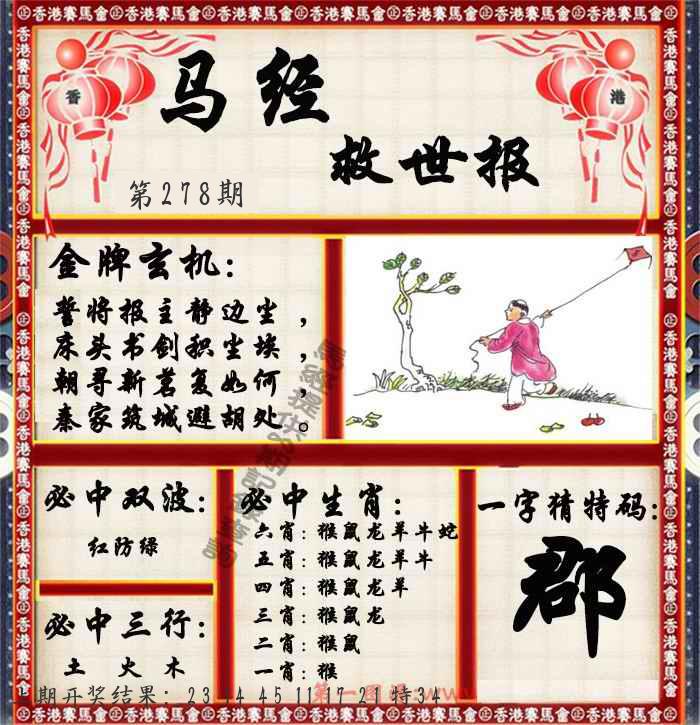 香港賽馬會
香 港
马经
救世报
第278期
金牌玄机:
誓将报主静边尘，
床头书剑积尘埃，
朝寻新茗复如何，
秦家筑城避胡处。
必中双波:
红防绿
必中三行:
土 火 木
必中生肖:
六肖: 猴鼠龙羊牛蛇
五肖: 猴鼠龙羊牛
四肖: 猴鼠龙羊
三肖: 猴鼠龙
二肖: 猴鼠
一肖: 猴
一字猜特码:
郡
期开奖结果: 23 44 45 11 17 21 特34